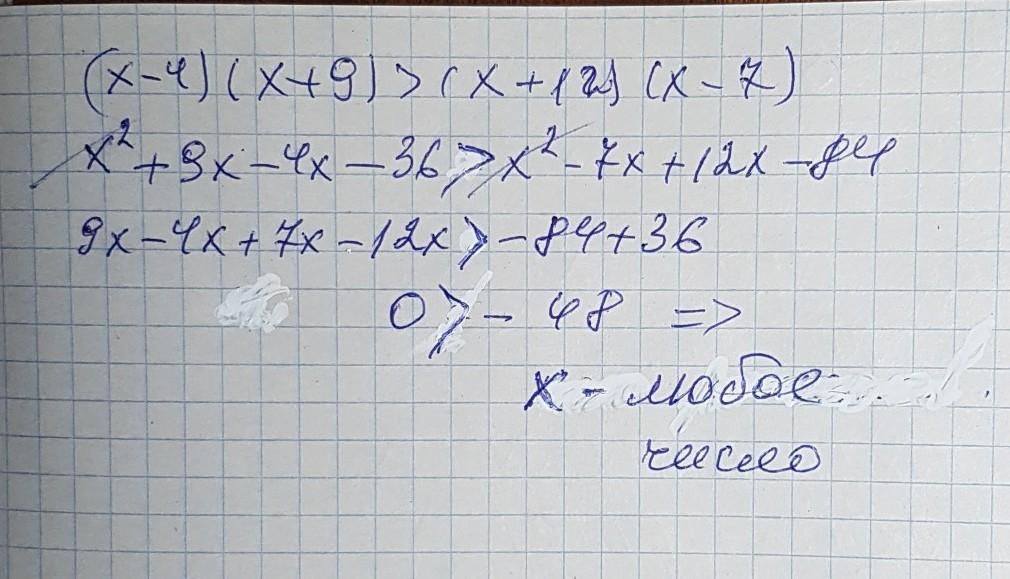 (x-4)(x+9)>(x+12)(x-7)
x²+9x-4x-36>x²-7x+12x-84
9x-4x+7x-12x>-84+36
0>-48 =>
x-любое
число